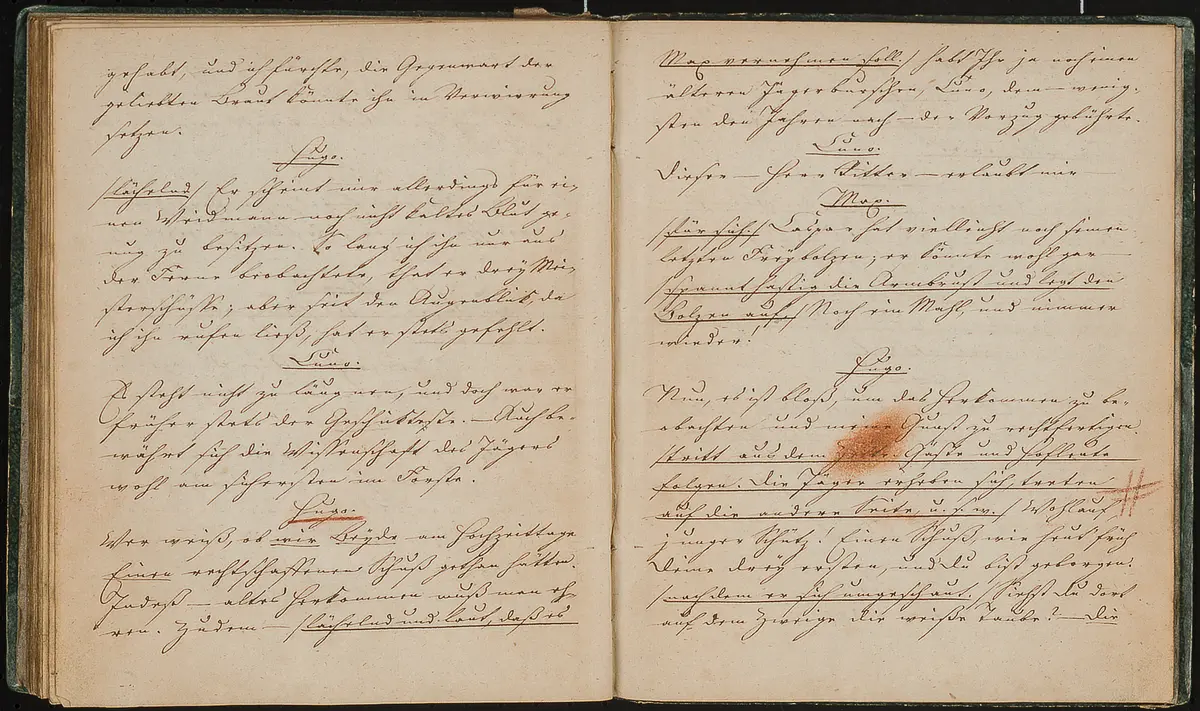 gehabt, und ich fürchte, die Gegenwart der
geliebten Braut könnte ihn in Verwirrung
setzen.
Hugo.
/lächelnd/ Er scheint mir allerdings für ei-
nen Weidmann noch nicht kaltes Blut ge-
nug zu besitzen. So lang ich ihn nur aus
der Ferne beobachtete, that er drey Mei-
sterschüsse; aber seit dem Augenblick, da
ich ihn rufen ließ, hat er stets gefehlt.
Cuno.
Es steht nicht zu läugnen, und doch war er
früher stets der Geschickteste. – Auch be-
währt sich die Wissenschaft des Jägers
wohl am sichersten im Forste.
Hugo.
Wer weiß, ob wir Beyde am Hochzeittage
Einen rechtschaffenen Schuß gethan hätten.
Indeß – altes Herkommen muß man eh-
ren. Zudem – /lächelnd und laut, daß es
Max vernehmen soll./ habt Ihr ja noch einen
älteren Jägerburschen, Cuno, dem – wenig-
sten den Jahren nach – der Vorzug gebührte.
Cuno.
Dieser – Herr Ritter – erlaubt mir –
Max.
/Für sich./ Caspar hat vielleicht noch seinen
letzten Freybolzen; er könnte wohl gar –
/spannt hastig die Armbrust und legt den
Bolzen auf./ Noch ein Mahl, und nimmer
wieder!
Hugo.
Nun, es ist bloß, um das Herkommen zu be-
obachten und meine Gunst zu rechtfertigen.
/tritt aus dem Gäste und Hofleute
folgen. Die Jäger erheben sich, treten
auf die andere Seite, u. s. w./ Wohlauf
junger Schütz! Einen Schuß, wie heut früh
Deine drey ersten, und du bist geborgen.
/nachdem er sich umgeschaut./ Siehst Du dort
auf dem Zweige die weiße Taube? – Die